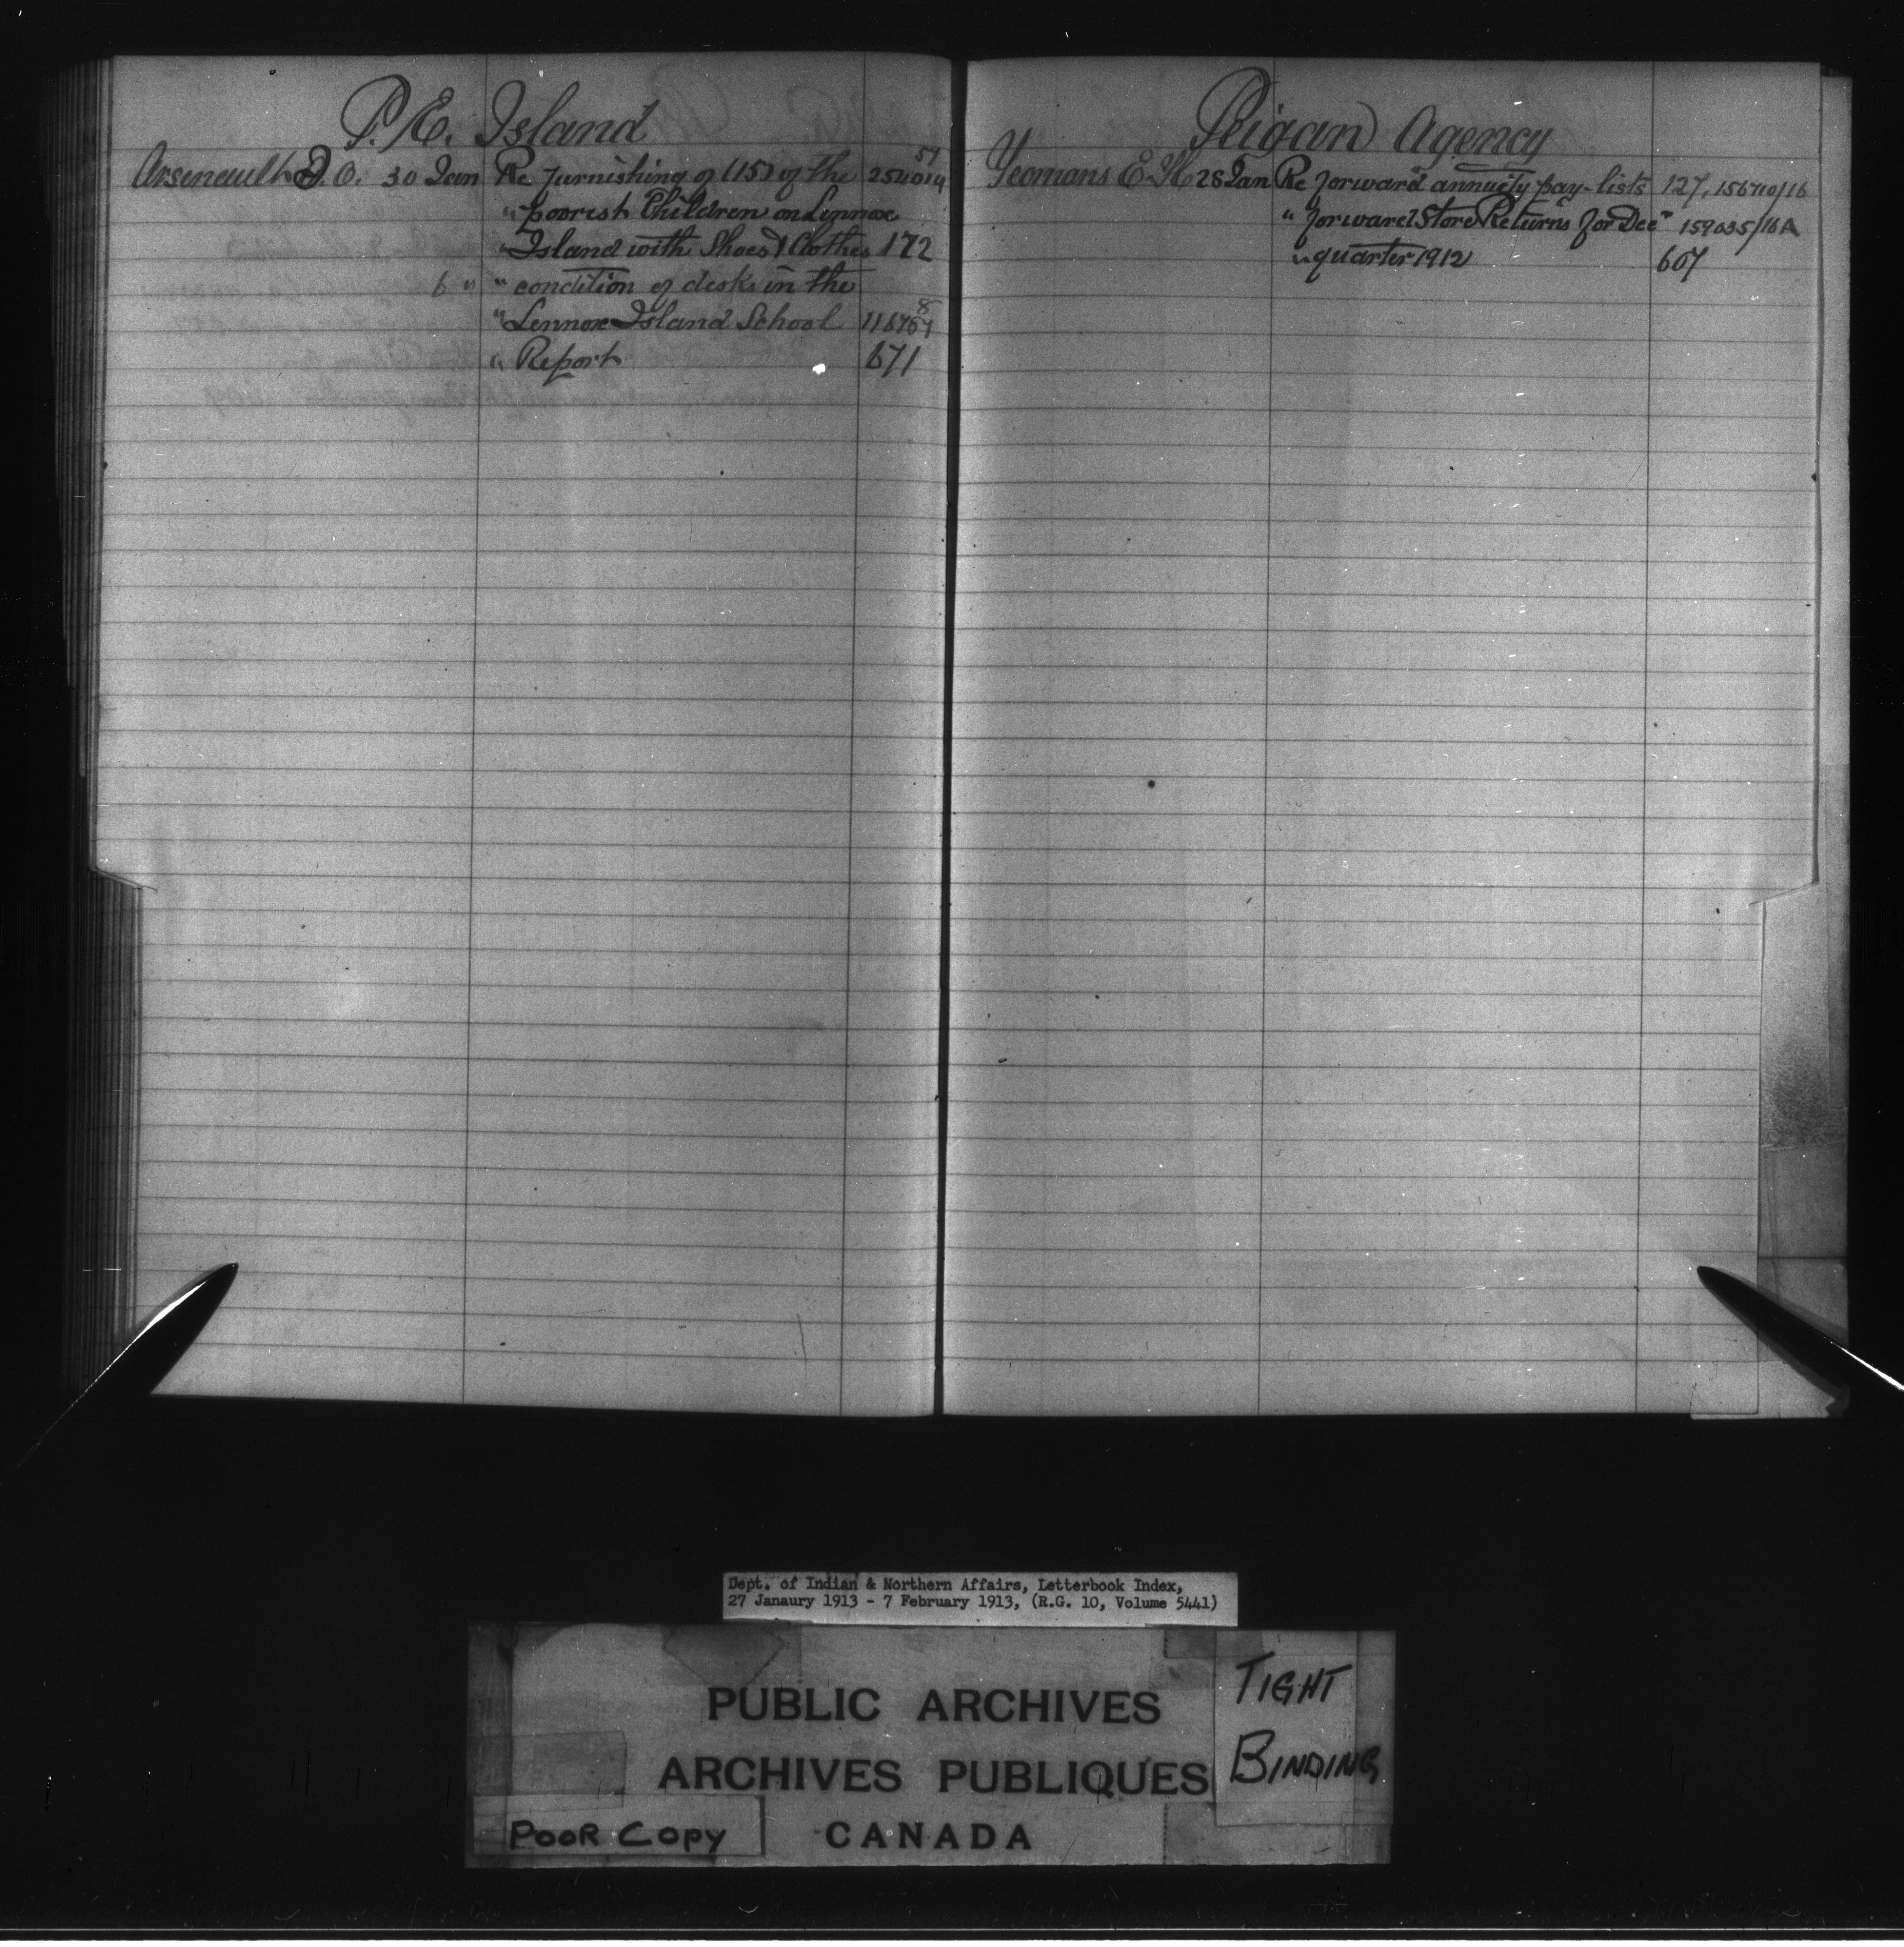 P. E. Island
Arseneault J. O. 30 Jan Re furnishing of (15) of the 254014 57
" poorest Children on Lennox
" Island with Shoes & Clothes 172
6 " " condition of desks in the
" Lennox Island School 11676
" Report 671
Peigan Agency
Yeomans E. H. 28 Jan Re forward annuity pay-lists 127, 156710/16
" forward Store Returns for Dec" 159035/16A
" quarter 1912 607
Dept. of Indian & Northern Affairs, Letterbook Index,
27 Janaury 1913 - 7 February 1913, (R.G. 10, Volume 5441)
PUBLIC ARCHIVES
ARCHIVES PUBLIQUES
CANADA
TIGHT
BINDING
POOR COPY